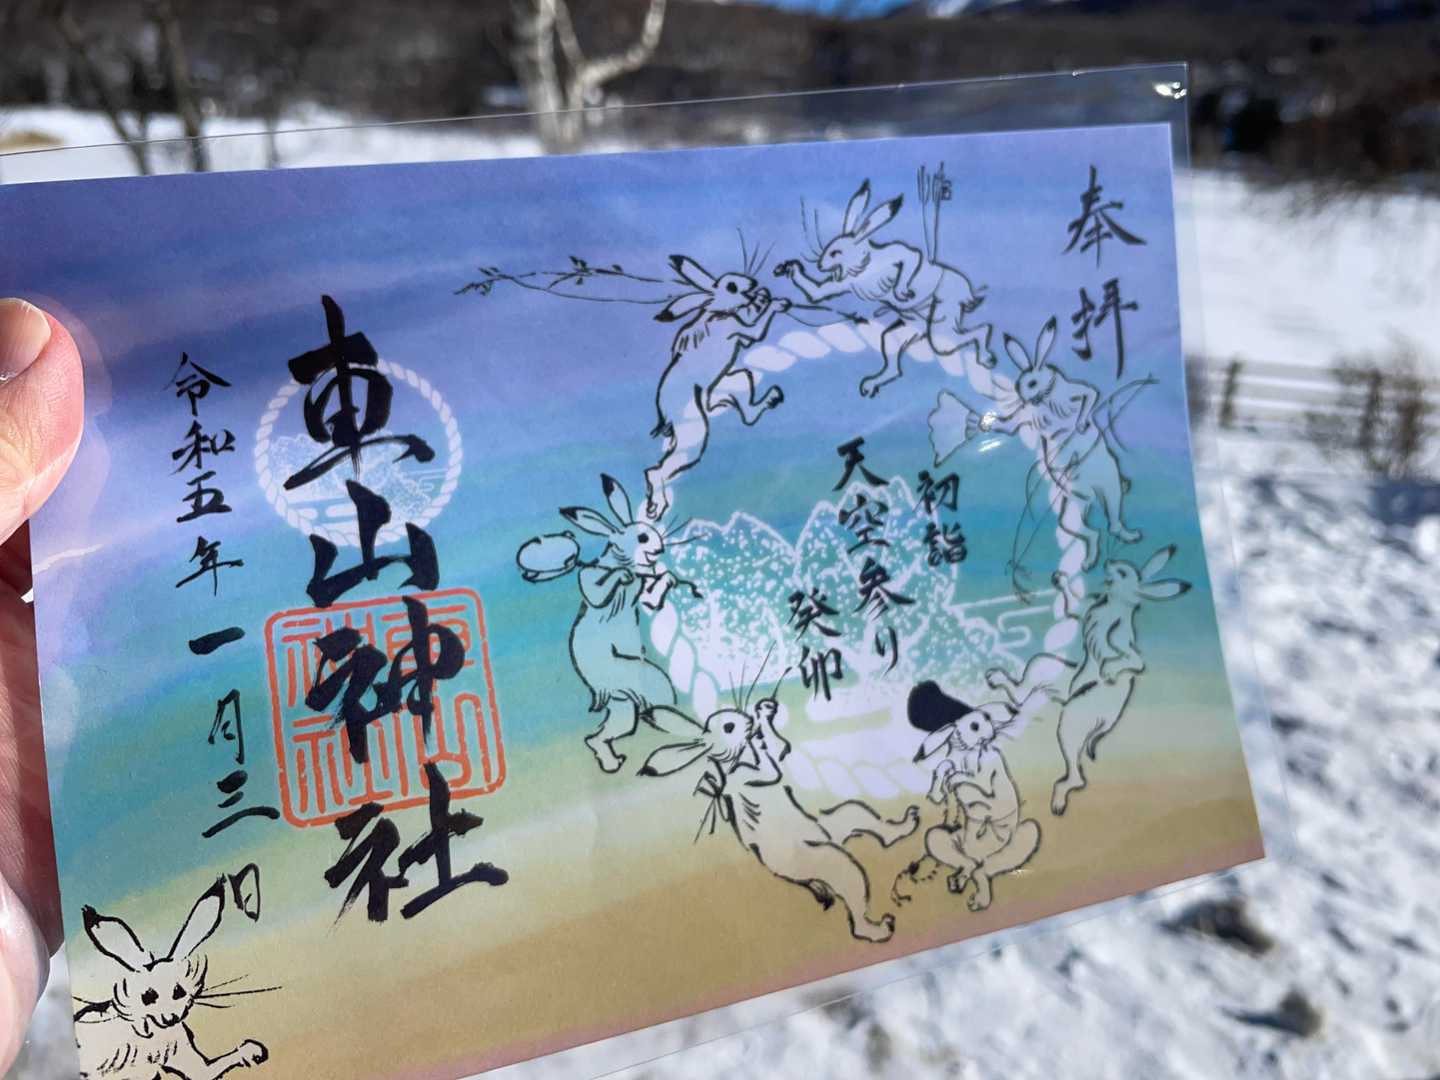 奉拝
初詣
天空参り
癸卯
車山神社
車山
神社
令和五年一月三日